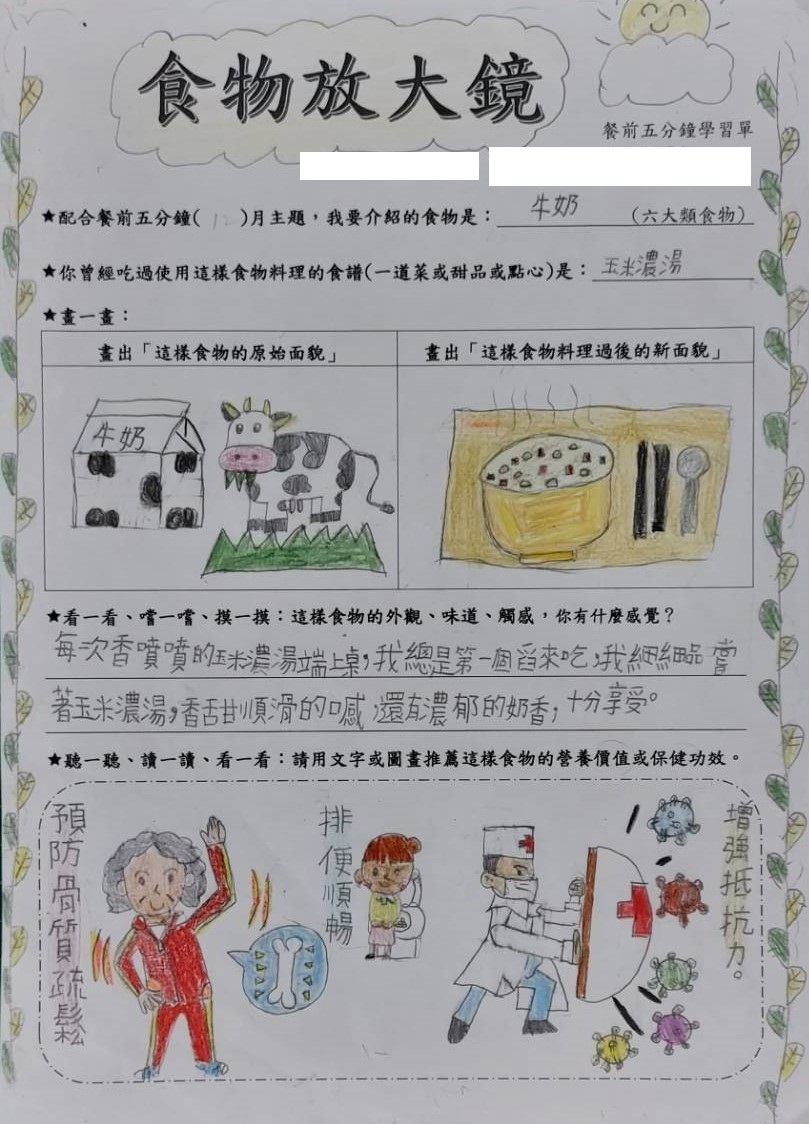 食物放大鏡
餐前五分鐘學習單
★配合餐前五分鐘(12)月主題，我要介紹的食物是：牛奶（六大類食物）
★你曾經吃過使用這樣食物料理的食譜(一道菜或甜品或點心)是：玉米濃湯
★畫一畫：
畫出「這樣食物的原始面貌」
畫出「這樣食物料理過後的新面貌」
牛奶
★看一看、嚐一嚐、摸一摸：這樣食物的外觀、味道、觸感，你有什麼感覺？
每次香噴噴的玉米濃湯端上桌，我總是第一個舀來吃，我細細品嘗
著玉米濃湯，香甜順滑的口感，還有濃郁的奶香，十分享受。
★聽一聽、讀一讀、看一看：請用文字或圖畫推薦這樣食物的營養價值或保健功效。
預防骨質疏鬆
排便順暢
增強抵抗力。